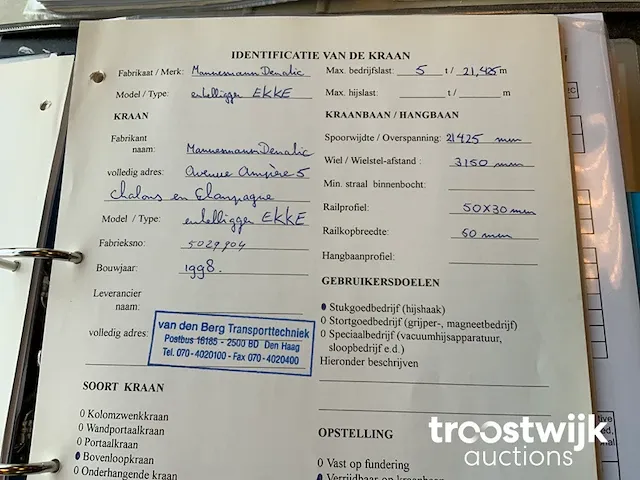 IDENTIFICATIE VAN DE KRAAN
Fabrikaat / Merk: Mannesmann Dematic
Model / Type: enkelligger EKKE
KRAAN
Fabrikant
naam: Mannesmann Dematic
volledig adres: Avenue Ampère 5
Chalons en Champagne
Model / Type: enkelligger EKKE
Fabrieksno: 5029904
Bouwjaar: 1998.
Leverancier
naam:
volledig adres:
van den Berg Transporttechniek
Postbus 16185 - 2500 BD Den Haag
Tel. 070 - 4020100 - Fax 070 - 4020400
SOORT KRAAN
0 Kolomzwenkkraan
0 Wandportaalkraan
0 Portaalkraan
0 Bovenloopkraan
0 Onderhangende kraan
Max. bedrijfslast: 5 t / 21,425 m
Max. hijslast: t / m
KRAANBAAN / HANGBAAN
Spoorwijdte / Overspanning: 21425 mm
Wiel / Wielstel-afstand : 3150 mm
Min. straal binnenbocht:
Railprofiel: 50x30 mm
Railkopbreedte: 50 mm
Hangbaanprofiel:
GEBRUIKERSDOELEN
0 Stukgoedbedrijf (hijshaak)
0 Stortgoedbedrijf (grijper-, magneetbedrijf)
0 Speciaalbedrijf (vacuumhijsapparatuur,
sloopbedrijf e.d.)
Hieronder beschrijven
OPSTELLING
0 Vast op fundering
0 Verrijdbaar op kraanbaan
troostwijk
auctions